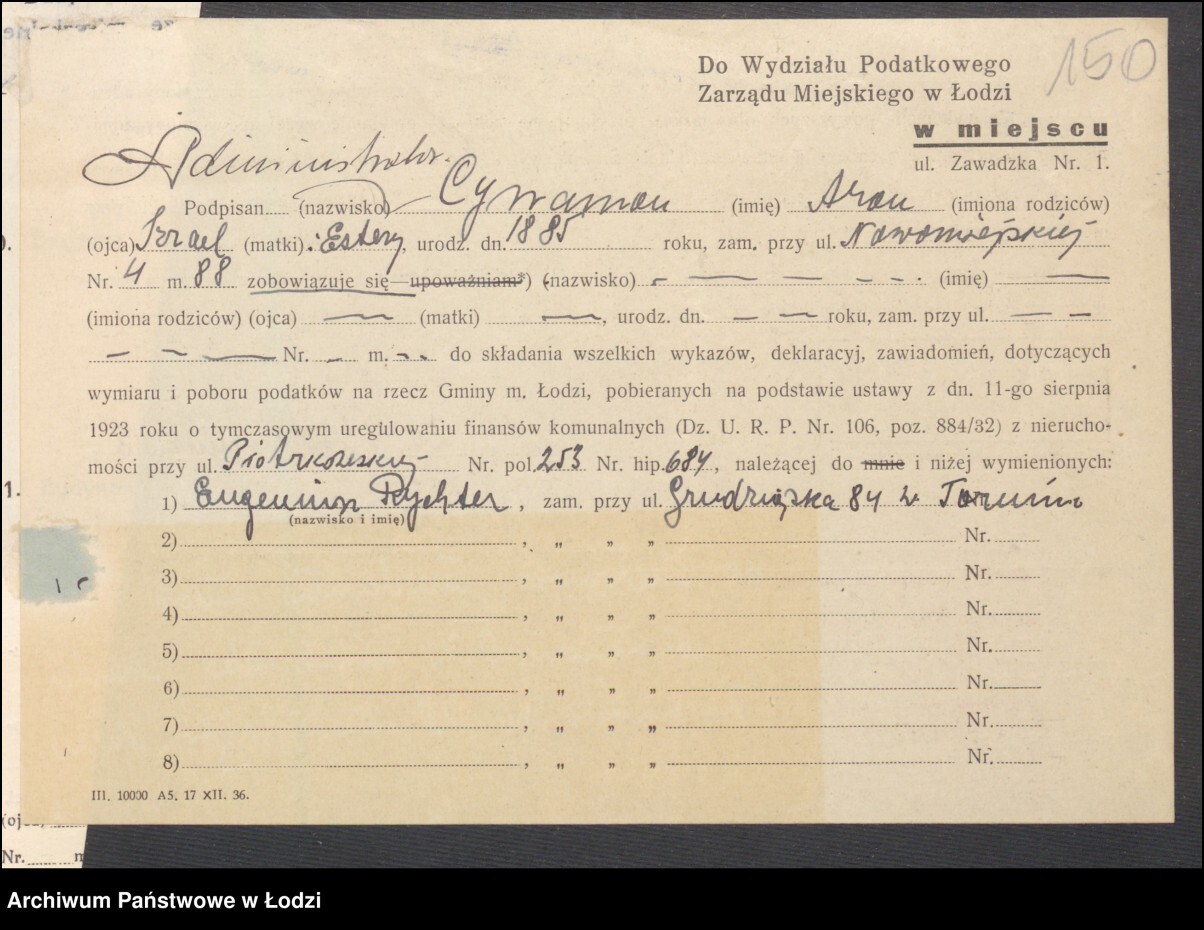 150
Do Wydziału Podatkowego
Zarządu Miejskiego w Łodzi
w miejscu
ul. Zawadzka Nr. 1.
Administrator.
Podpisan..... (nazwisko) Cynamon (imię) Aron (imiona rodziców)
(ojca) Izrael (matki) Estery, urodz. dn. 1885 roku, zam. przy ul. Nowomiejskiej
Nr. 4 m. 88 zobowiązuje się—upoważniam*) (nazwisko) — — — — (imię) —
(imiona rodziców) (ojca) — (matki) —, urodz. dn. — — roku, zam. przy ul. — —
— — — Nr. — m. — - do składania wszelkich wykazów, deklaracyj, zawiadomień, dotyczących
wymiaru i poboru podatków na rzecz Gminy m. Łodzi, pobieranych na podstawie ustawy z dn. 11-go sierpnia
1923 roku o tymczasowym uregulowaniu finansów komunalnych (Dz. U. R. P. Nr. 106, poz. 884/32) z nierucho-
mości przy ul. Piotrkowskiej Nr. pol. 253 Nr. hip. 684, należącej do mnie i niżej wymienionych:
1) Eugeniusz Rychter, zam. przy ul. Grudziąska 84 w Toruniu
(nazwisko i imię)
2) , „ „ „ Nr.
3) , „ „ „ Nr.
4) , „ „ „ Nr.
5) , „ „ „ Nr.
6) , „ „ „ Nr.
7) , „ „ „ Nr.
8) , „ „ „ Nr.
III. 10000 A5. 17 XII. 36.
1.
(oj
Nr. m
Archiwum Państwowe w Łodzi